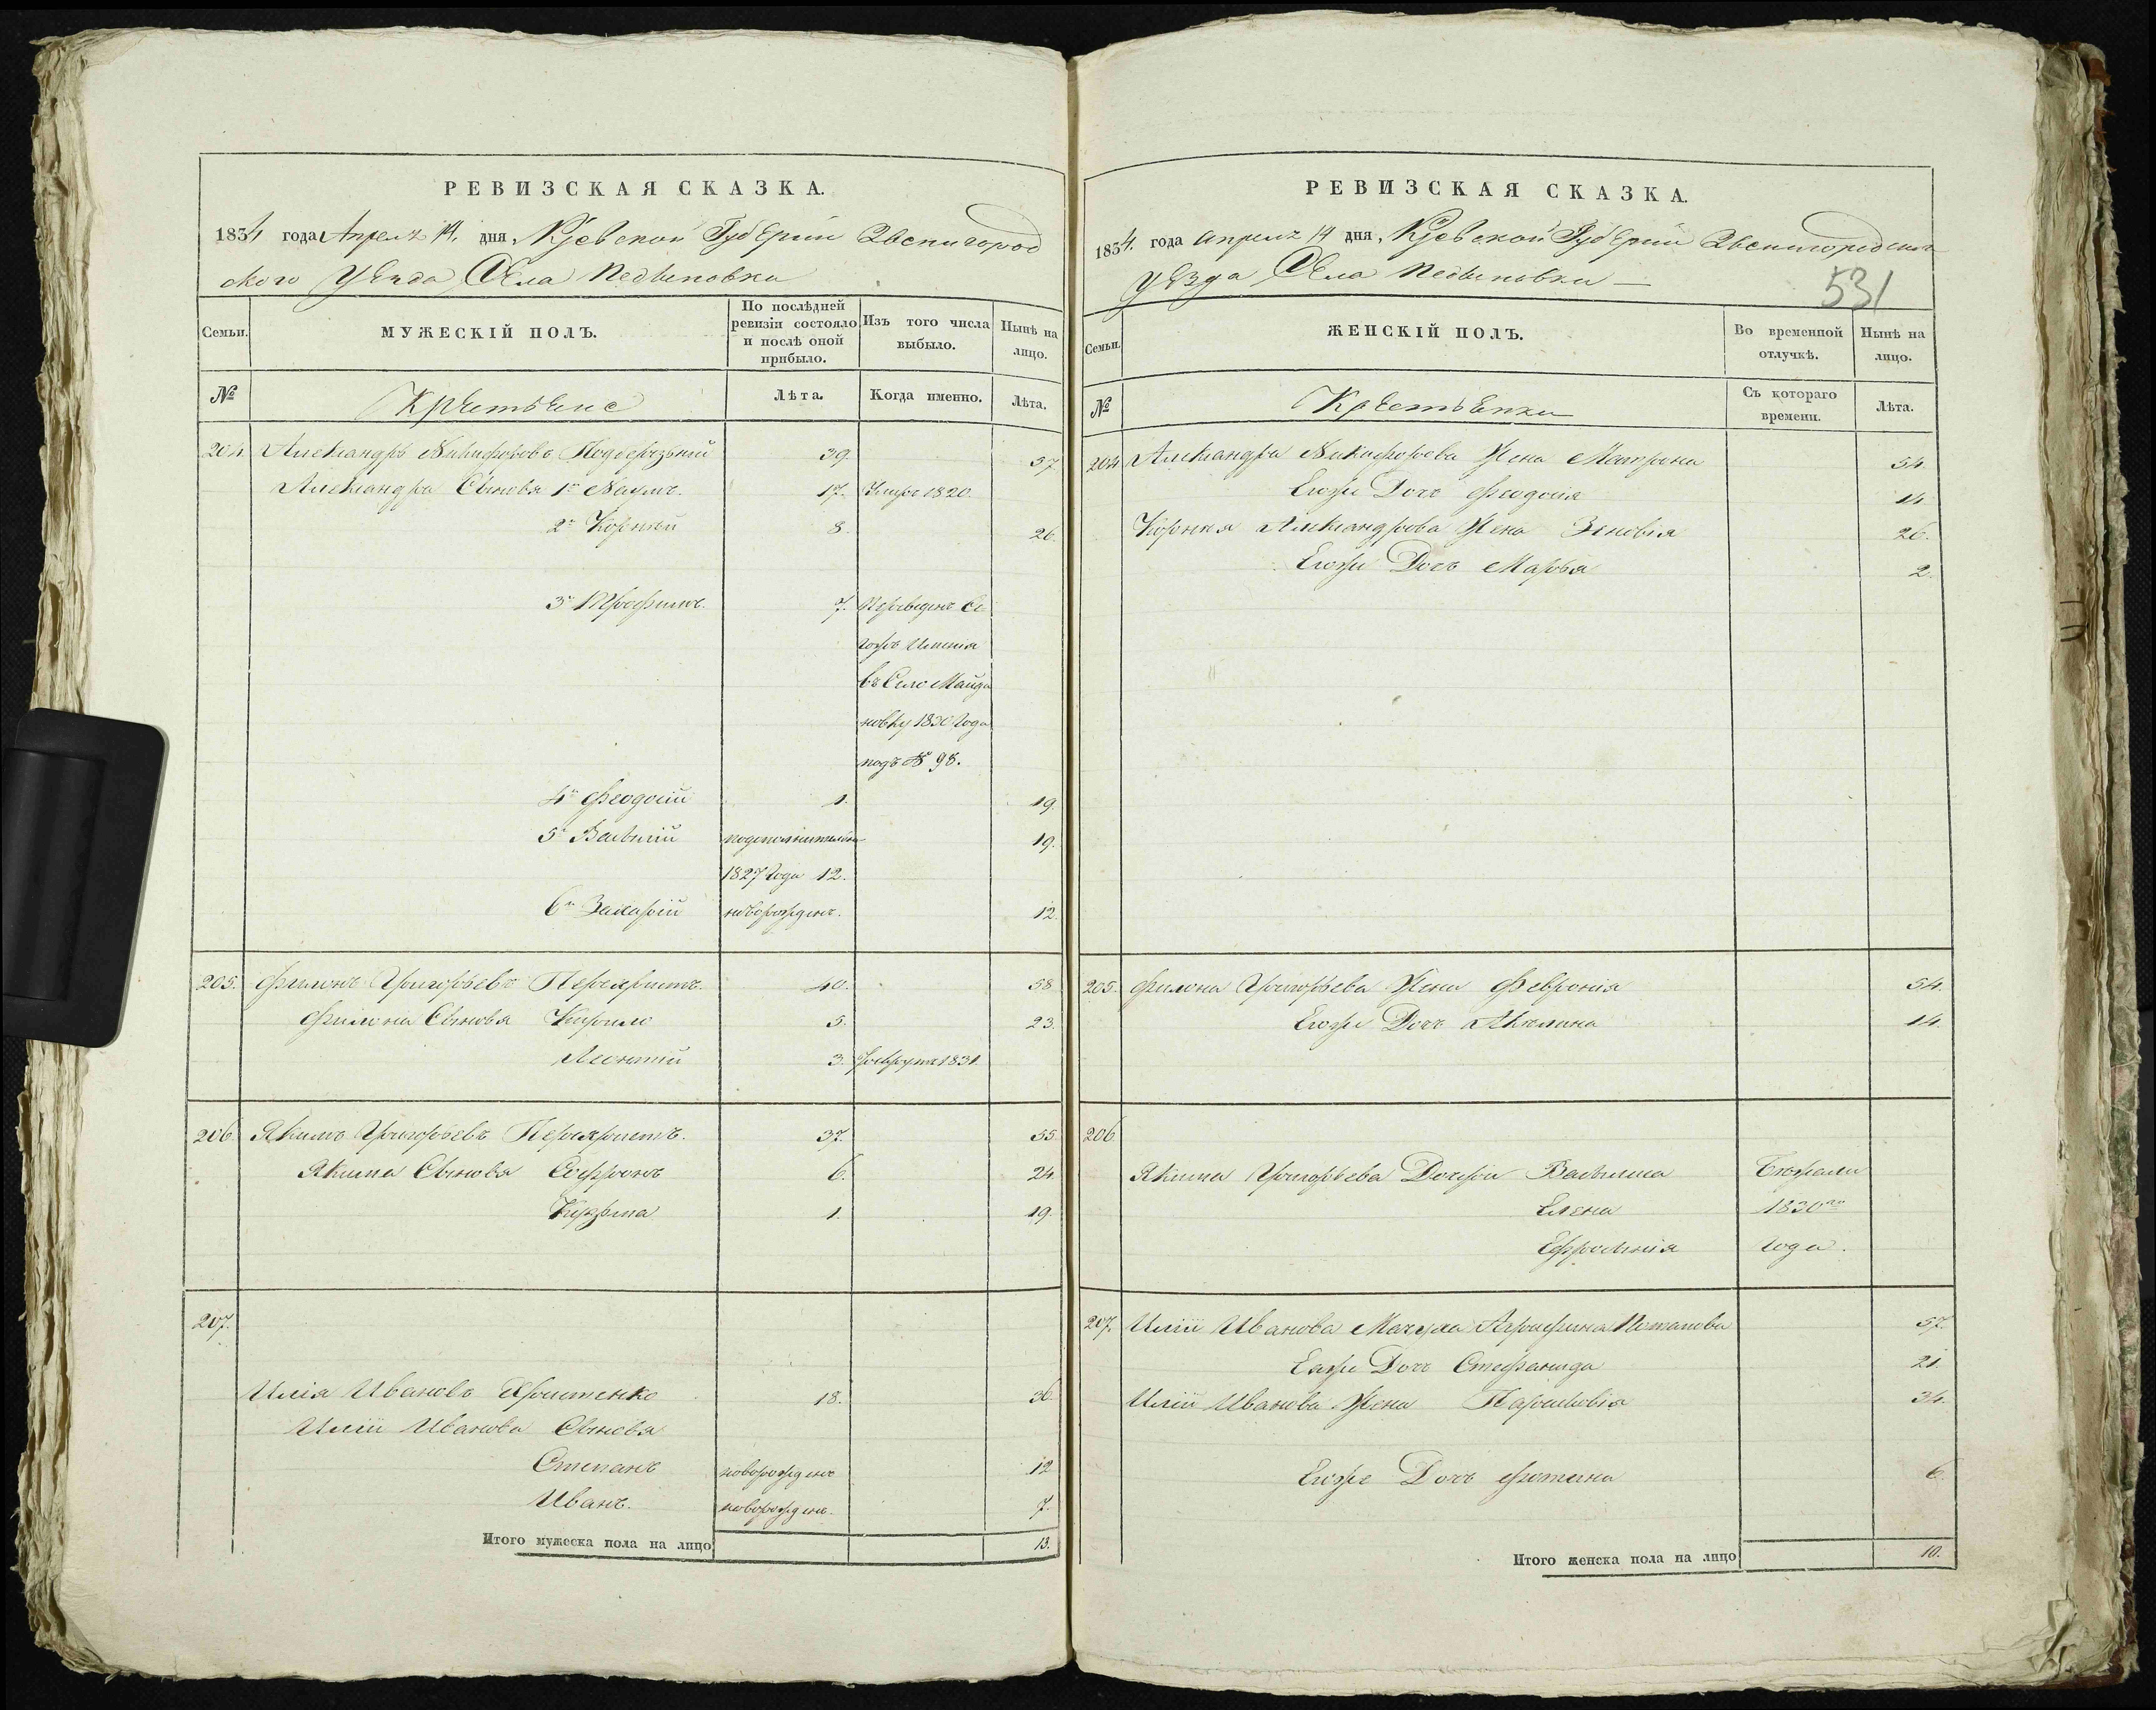 РЕВИЗСКАЯ СКАЗКА.
1834 года Апреля 14. дня, Кіевской Губерніи Звенигород
ского Уезда Села
Семьи.
МУЖЕСКІЙ ПОЛЪ.
По послѣдней ревизіи состояло и послѣ оной прибыло.
Изъ того числа выбыло.
Нынѣ на лицо.
№
Крестьяне
Лѣта.
Когда именно.
Лѣта.
204. Александръ Никифоровъ 39. 57.
Александра Сыновья 1й Наумъ. 17. Умеръ 1820.
2й Корнѣй 8. 26.
3й Трофимъ. 7. Переведенъ Се
гожъ Имѣнія
въ Село Майда
новку 1830 Года
подъ № 98.
4й Феодосій 1. 19.
5й Василій пополнительно 19.
1827 Года 12.
6й Захарій новорожденъ. 12.
205. Филонъ Григорьевъ Перехристъ. 40. 58
Филона Сыновья Кирило 5. 23.
Леонтій 3. рекрутъ 1831.
206. Якимъ Григорьевъ Перехристъ. 37. 55.
Якима Сыновья Софронъ 6. 24.
Кузьма 1. 19.
207.
Илія Ивановъ 18. 36.
Иліи Иванова Сыновья
Степанъ новорожденъ 12
Иванъ. новорожденъ. 7.
Итого мужеска пола на лицо 13.
РЕВИЗСКАЯ СКАЗКА.
1834. года Апреля 14 дня, Кіевской Губерніи Звенигородского
уезда Села
531
Семьи.
ЖЕНСКІЙ ПОЛЪ.
Во временной отлучкѣ.
Нынѣ на лицо.
№
Крестьянки
Съ котораго времени.
Лѣта.
204. Александра Никифорова Жена Матрона 54.
Егоже Дочь Феодосія 14
Корнея Александрова Жена Зеновія 26.
Егоже Дочь Марфа 2.
205. Филона Григорьева Жена Февронія 54.
Егоже Дочь Акилина 14.
206
Якима Григорьева Дочери Василиса Бежали
Елена 1830го
Ефросинія Года.
207. Иліи Иванова Мачуха 57.
Еяже Дочь Стефанида 21.
Иліи Иванова Жена Парасковія 34.
Егоже Дочь Фотина 6.
Итого женска пола на лицо 10.